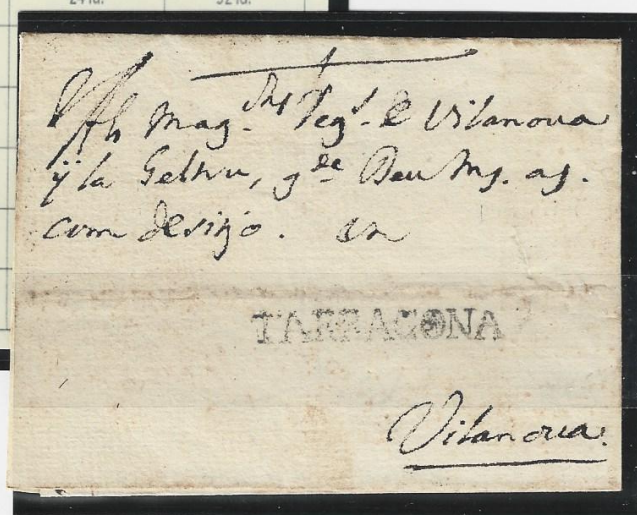 Als Mag.chs Reg.s de Vilanova
ÿ la Geltru, g.de Deu M.s a.s.
com desijo. en
TARRAGONA
Vilanova.